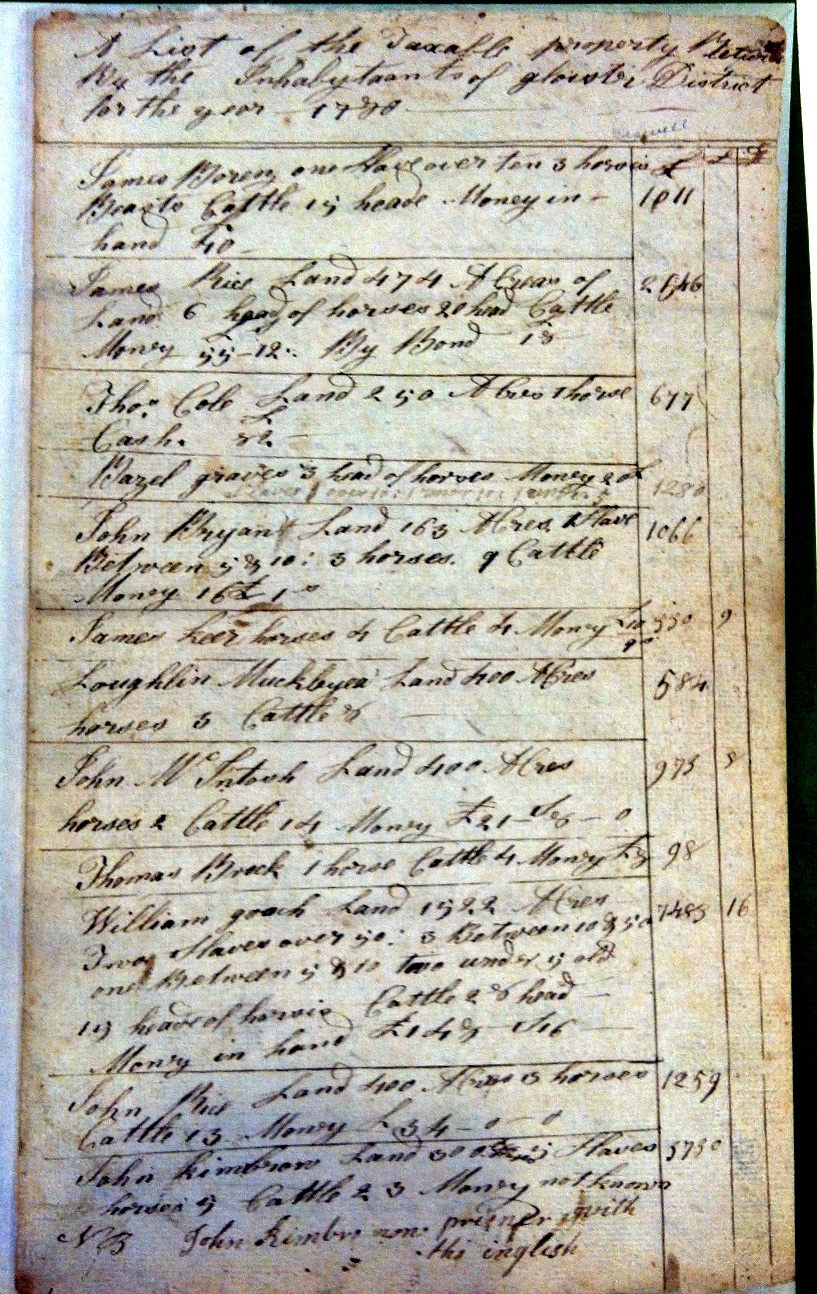 A List of the Taxable property
By the Inhabytants of gloster District
for the year 1780
James Boren one Slave over ten 3 horses £
Beasts Cattle 15 head Money in 1011
hand £10
James Rice Land 474 ACreas of 2646
Land 6 head of horses 20 head Cattle
Money 55-12 By Bond 18
Thos. Cole Land 250 ACres 1 horse 677
Cash. £
Bazel graves 3 head of horses Money 20£ 1280
John Bryant Land 163 ACres 1 Slave 1066
Between 5 & 10: 3 horses. 9 Cattle
Money 16£
James Leer horses 4 Cattle 4 Money 550 9
Loughlin Land 400 ACres 584
horses 3 Cattle 8
John McIntosh Land 400 ACres 975 8
horses 2 Cattle 14 Money £21 - 0
Thomas Brock 1 horse Cattle 4 Money £8 98
William gooch Land 1522 ACres 7485 16
Two Slaves over 50: 3 Between 10 & 50
one Between 5 & 10 two under 5 old
15 head of horsis Cattle 28 head
Money in hand £148 - S16
John Rice Land 400 ACres 3 horses 1259
Cattle 13 Money £34-0-0
John Kimbrow Land 300 5 Slaves 3730
horses 5 Cattle 23 Money not known
NB John Kimbro now prisner with
the inglish